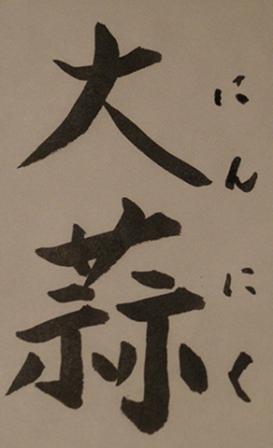 大蒜
にんにく